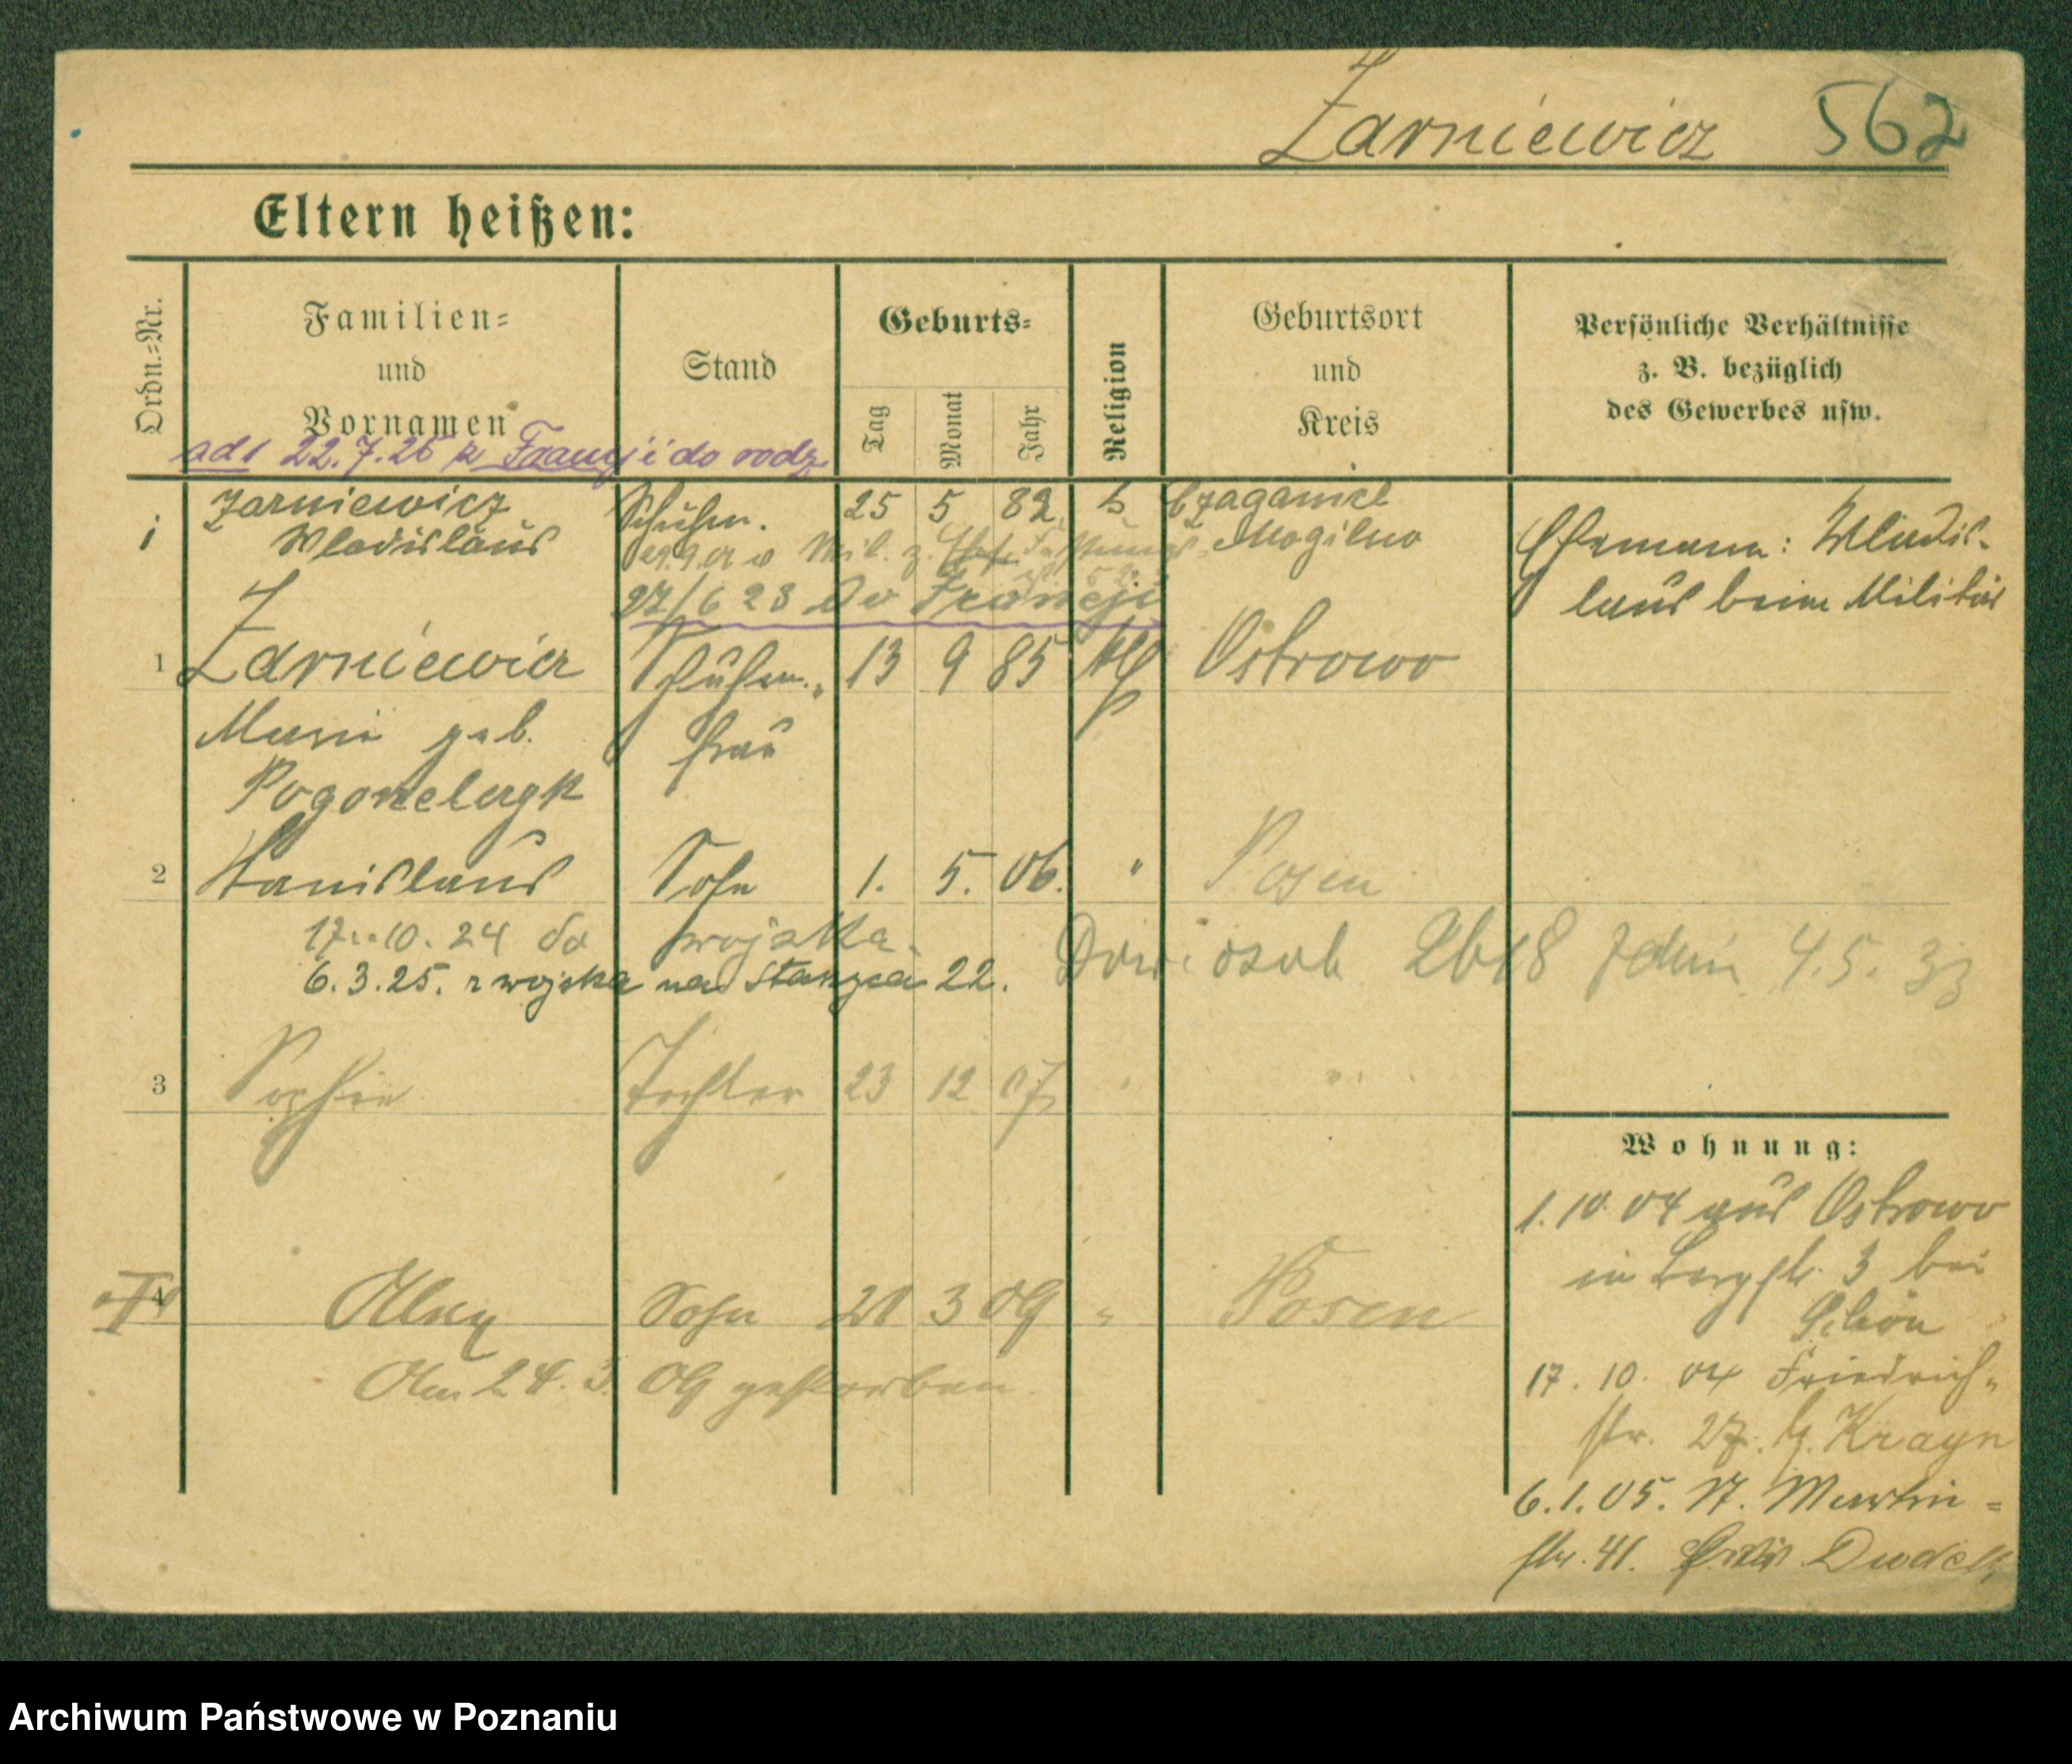 Żarniewicz 562
Eltern heißen:
Ordn.=Nr.
Familien=
und
Vornamen
Stand
Geburts=
Tag
Monat
Jahr
Religion
Geburtsort
und
Kreis
Persönliche Verhältnisse
z. B. bezüglich
des Gewerbes usw.
ad 1 22.7.26 z Francji do rodz.
1 Zarniewicz Schuhm. 25 5 82
Wladislaus Mogilno
Ehemann: Wladis-
laus beim Militär
27/6 23 do Francji
1 Żarniewicz Schuhm.- 13 9 85 kth Ostrowo
Marie geb. frau
2 Stanislaus Sohn 1. 5. 06. " Posen
17.10.24 do wojska.
6.3.25. z wojska na 22.
osob. 2618 4.5.33
3 Sophie Tochter 23 12 07 " "
Wohnung:
1.10.04 aus Ostrowo
in Bergstr. 3 bei
4 Sohn 21 3 09 " Posen
Am 24.3. 09 gestorben.
17.10.04 Friedrich-
str. 27. b. Krayn
6.1.05. St. Martin=
str. 41.
Archiwum Państwowe w Poznaniu